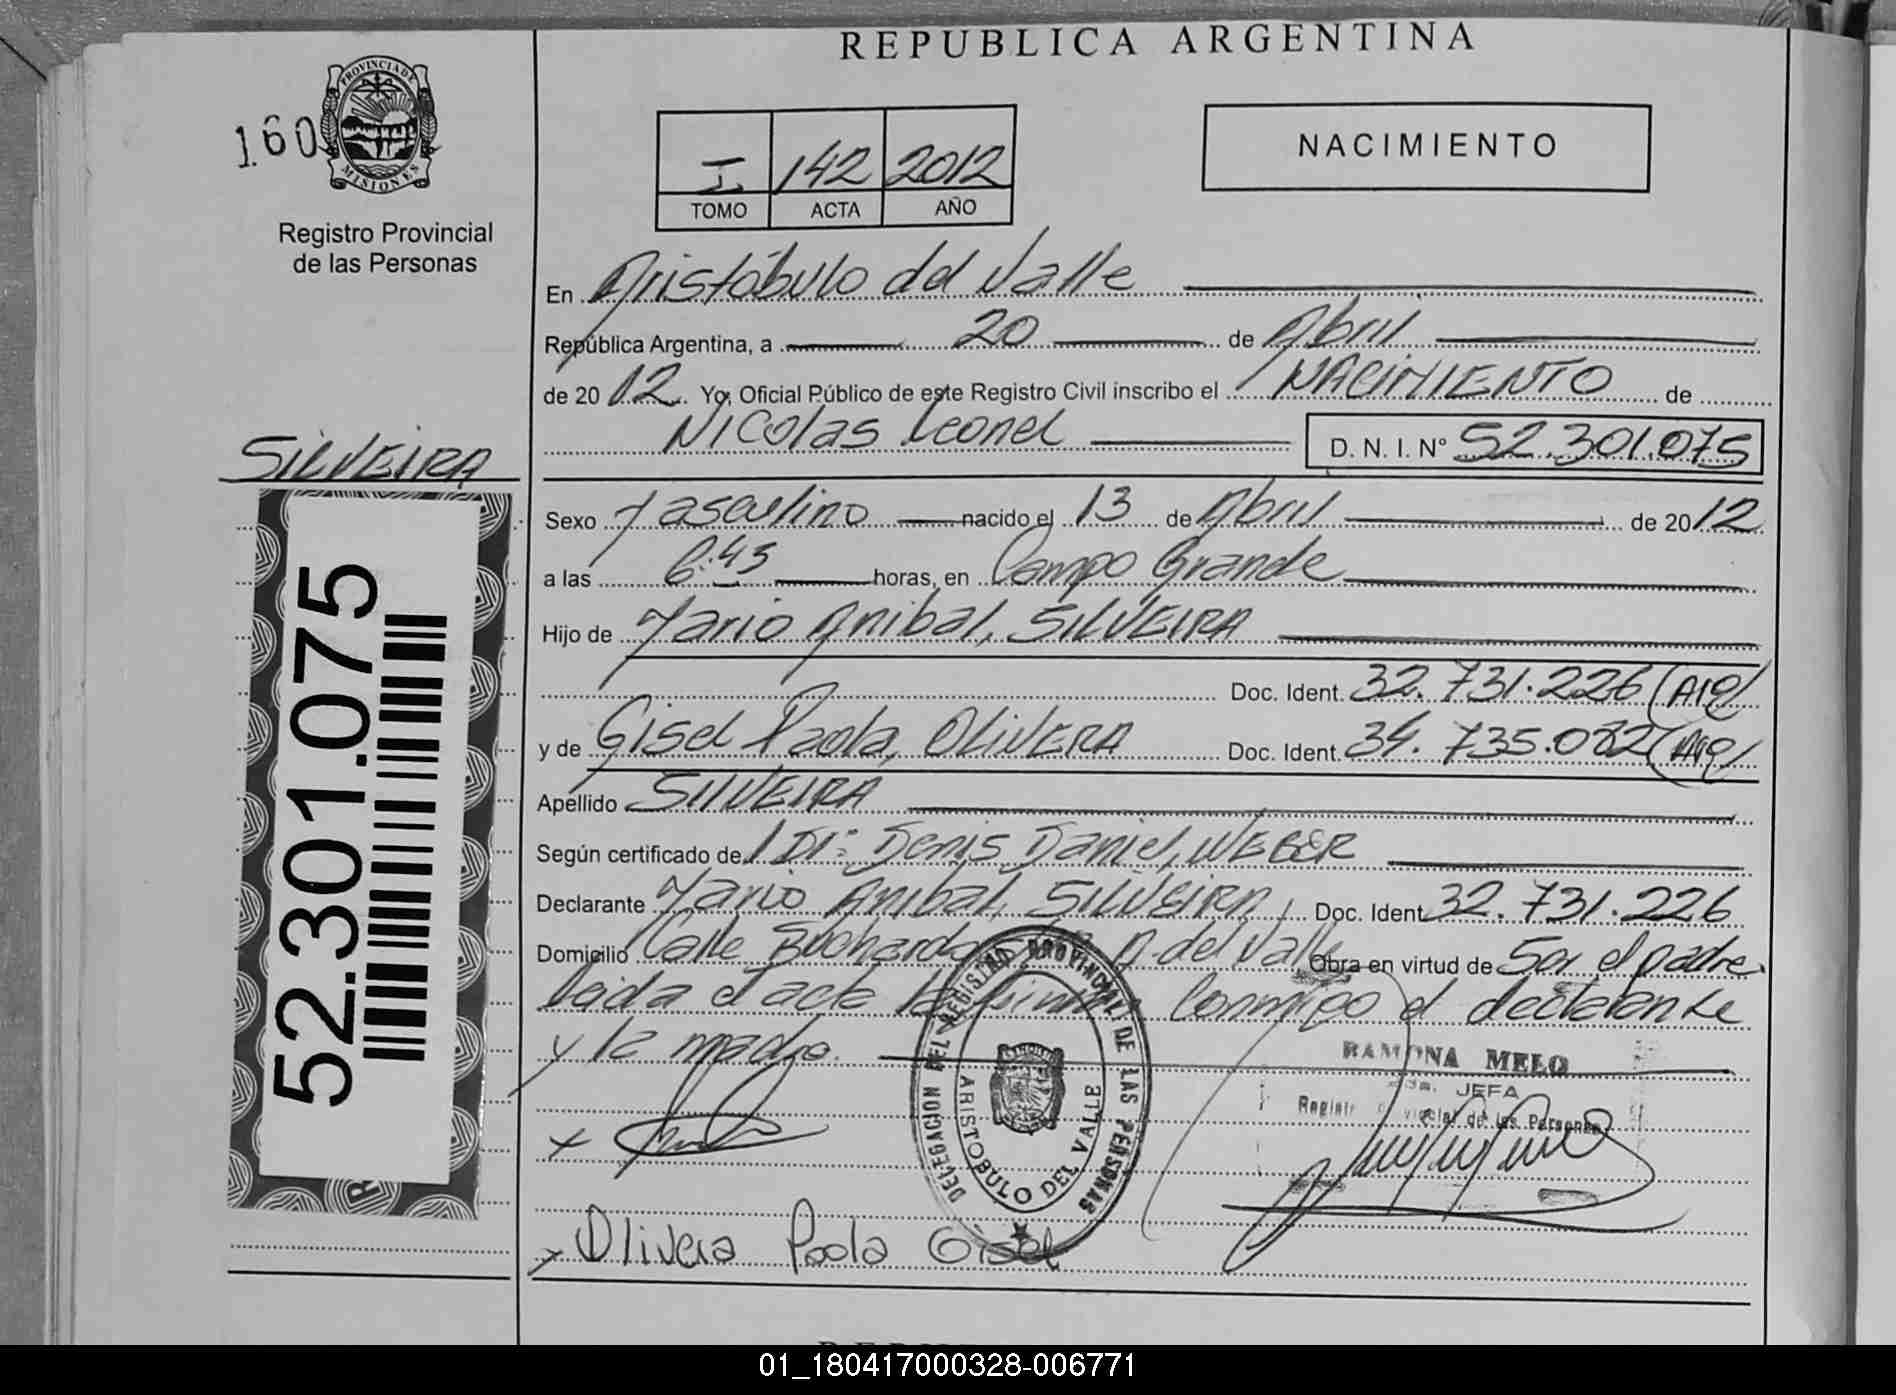 REPUBLICA ARGENTINA
160
PROVINCIA DE MISIONES
Registro Provincial
de las Personas
I 142 2012
TOMO ACTA AÑO
NACIMIENTO
En Aristóbulo del Valle
República Argentina, a 20 de Abril
de 2012. Yo, Oficial Público de este Registro Civil inscribo el NACIMIENTO de
Nicolas Leonel D. N. I. Nº 52.301.075
SILVEIRA
52.301.075
Sexo Masculino nacido el 13 de Abril de 2012
a las 6:45 horas, en Campo Grande
Hijo de Mario Anibal, SILVEIRA
Doc. Ident. 32.731.226 (Arg)
y de Gisel Paola, OLIVERA Doc. Ident. 34.735.082 (Arg)
Apellido SILVEIRA
Según certificado de Dr: Denis Daniel, WEBER
Declarante Mario Anibal, SILVEIRA Doc. Ident. 32.731.226
Domicilio Calle Buchardo A. del Valle Obra en virtud de Ser el padre.
Leida el acta conmigo el declarante
y la madre.
RAMONA MELO
JEFA
de las Personas
DELEGACION DEL REGISTRO PROVINCIAL DE LAS PERSONAS
ARISTOBULO DEL VALLE
x
x Olivera Paola Gisel
01_180417000328-006771